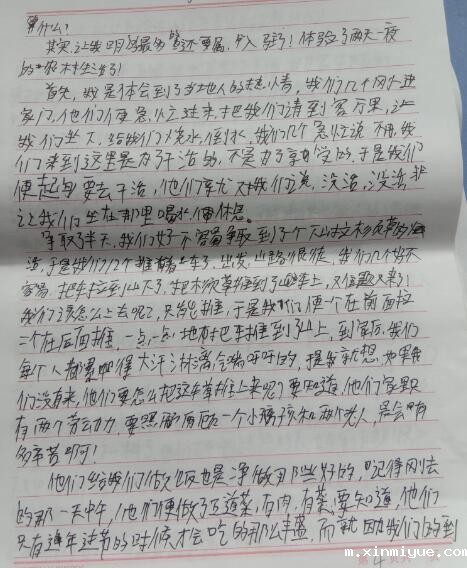 是什么?
其实让我明白最多的还要属,入驻了!体验了两天一夜
的农村生活了!
首先,我是体会到了当地人的热情,我们几个刚进
家门,他们便急忙过来,把我们请到客厅里,让
我们坐下,给我们又烧水,倒水,我们几个急忙说不用,我
们来到这里是为了干活的,不是为了享受的,于是我们
便起身要去干活,他们李尤对我们说,没活,没活,非
让我们坐在那里喝水,休息。
争取了半天,我们好不容易争取到了个下山拉
活,于是我们几个推着车了出发,山路很陡,我们几个好不
容易把车拉到山下了,把木须草推到了车上,又但题又来了!
我们该怎么上去呢?只能推,于是我们便一个在前面拉
二个在后面推,一点一点地把车推到了山上,到家后,我们
每个人都累得大汗淋漓气喘吁吁的,提我就想如果我
们没有来,他们要怎么把这车草推上来呢?要知道,他们家里只
有两个劳动力,要照顾一个小孩和两个老人,是会有
多辛苦啊!
他们给我们做饭也是净做那些好的,记得刚去
的那一天中午,他们便做了五道菜,有肉,有菜,要知道,他们
只有过年过节的时候才会吃的那么丰盛,而就因我们的到
m.xinmiyue.com